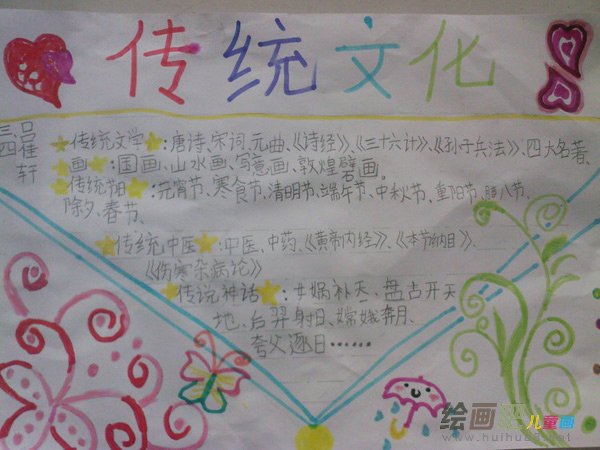 传统文化
三、四
传统文学:唐诗、宋词、元曲、《诗经》、《三十六计》、《孙子兵法》、四大名著、
画:国画、山水画、写意画、敦煌壁画。
传统节日:元宵节、寒食节、清明节、端午节、中秋节、重阳节、腊八节、
除夕、春节、
传统中医:中医、中药、《黄帝内经》、《本节纲目》、
《伤寒杂病论》
传说神话:女娲补天、盘古开天
地、后羿射日、嫦娥奔月、
夸父逐日……
绘画吧儿童画
www.huihua8.net